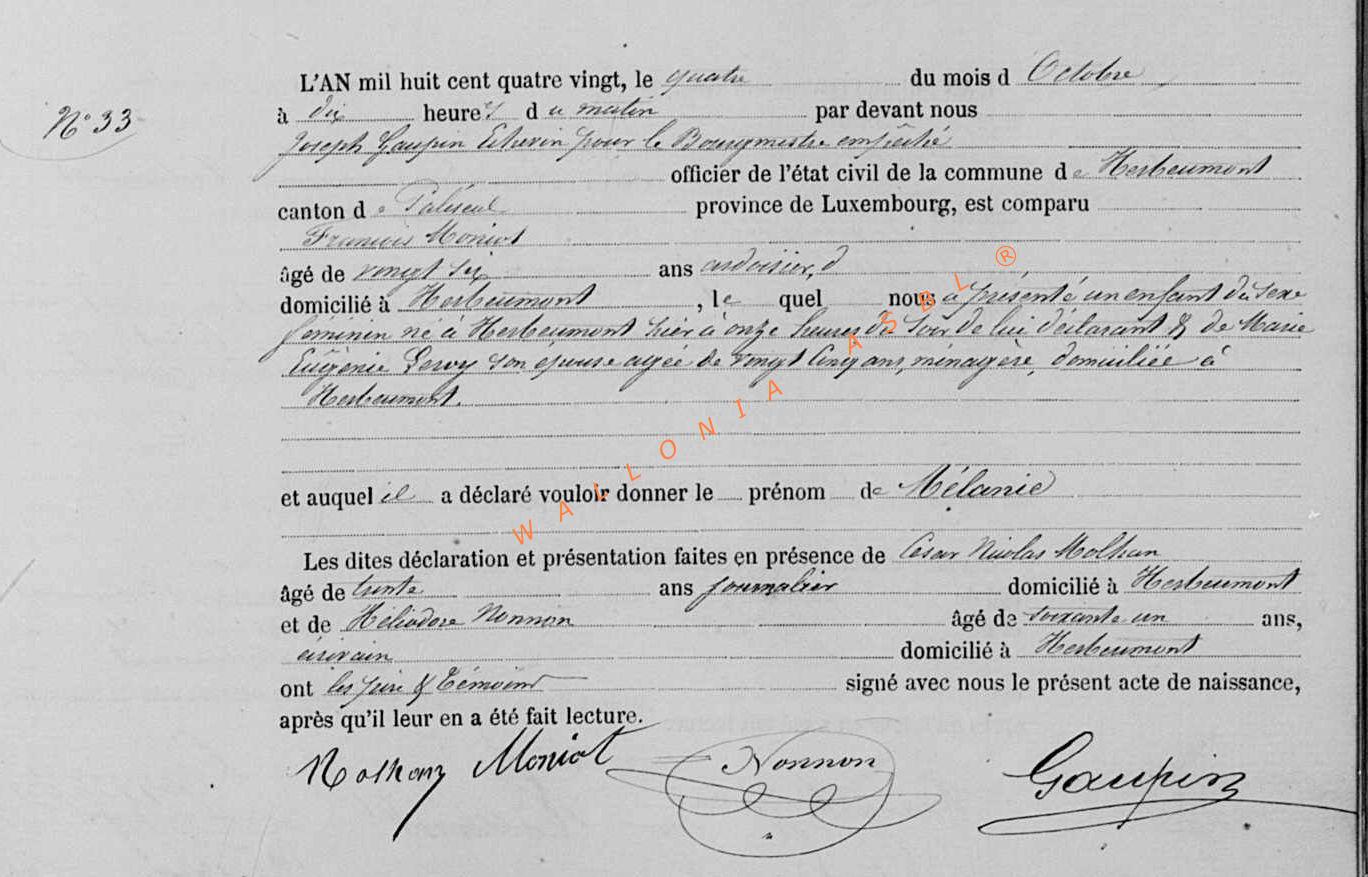 L'AN mil huit cent quatre vingt, le quatre du mois d Octobre
N° 33
à dix heures du matin par devant nous
Joseph Gaupin Echevin pour le Bourgmestre empêché
officier de l'état civil de la commune de Herbeumont
canton de Paliseul province de Luxembourg, est comparu
François Moniot
âgé de vingt six ans ardoisier, d
domicilié à Herbeumont, le quel nous a présenté un enfant du sexe
feminin né à Herbeumont hier à onze heures du soir de lui déclarant & de Marie
Eugénie son épouse agée de vingt cinq ans, ménagère, domiciliée à
Herbeumont.
et auquel il a déclaré vouloir donner le prénom de Mélanie
Les dites déclaration et présentation faites en présence de César Nicolas
âgé de trente ans journalier domicilié à Herbeumont
et de Héliodore Nonnon âgé de soixante un ans,
écrivain domicilié à Herbeumont
ont les père & témoins signé avec nous le présent acte de naissance,
après qu'il leur en a été fait lecture.
Moniot Nonnon Gaupin
WALLONIA ASBL ®